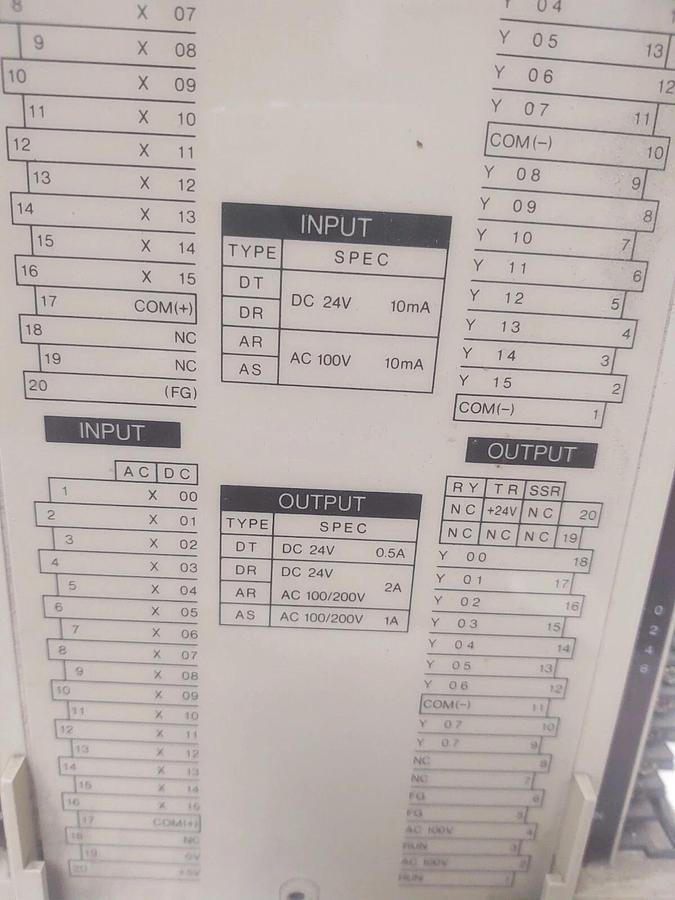 8 X 07
9 X 08
10 X 09
11 X 10
12 X 11
13 X 12
14 X 13
15 X 14
16 X 15
17 COM(+)
18 NC
19 NC
20 (FG)
INPUT
AC DC
1 X 00
2 X 01
3 X 02
4 X 03
5 X 04
6 X 05
7 X 06
8 X 07
9 X 08
10 X 09
11 X 10
12 X 11
13 X 12
14 X 13
15 X 14
16 X 15
17 COM(+)
18 NC
19 0V
20 +5V
INPUT
TYPE SPEC
DT
DC 24V 10mA
DR
AR
AC 100V 10mA
AS
OUTPUT
TYPE SPEC
DT DC 24V 0.5A
DR DC 24V
2A
AR AC 100/200V
AS AC 100/200V 1A
Y 04
Y 05 13
Y 06 12
Y 07 11
COM(-) 10
Y 08 9
Y 09 8
Y 10 7
Y 11 6
Y 12 5
Y 13 4
Y 14 3
Y 15 2
COM(-) 1
OUTPUT
RY TR SSR
NC +24V NC 20
NC NC NC 19
Y 00 18
Y 01 17
Y 02 16
Y 03 15
Y 04 14
Y 05 13
Y 06 12
COM(-) 11
Y 07 10
Y 07 9
NC 8
NC 7
FG 6
FG 5
AC 100V 4
RUN 3
AC 100V 2
RUN 1
0
2
4
6